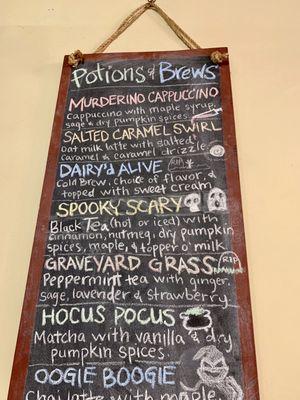 Potions & Brews
MURDERINO CAPPUCCINO
Cappuccino with maple syrup,
sage & dry pumpkin spices.
SALTED CARAMEL SWIRL
Oat milk latte with salted
caramel & caramel drizzle.
DAIRY'd ALIVE
RIP
Cold Brew, choice of flavor, &
topped with sweet cream
SPOOKY SCARY
Black Tea (hot or iced) with
cinnamon, nutmeg, dry pumpkin
spices, maple, & topper o' milk.
GRAVEYARD GRASS
RIP
Peppermint tea with ginger,
sage, lavender & strawberry.
HOCUS POCUS
Matcha with vanilla & dry
pumpkin spices
OOGIE BOOGIE
Chai latte with maple